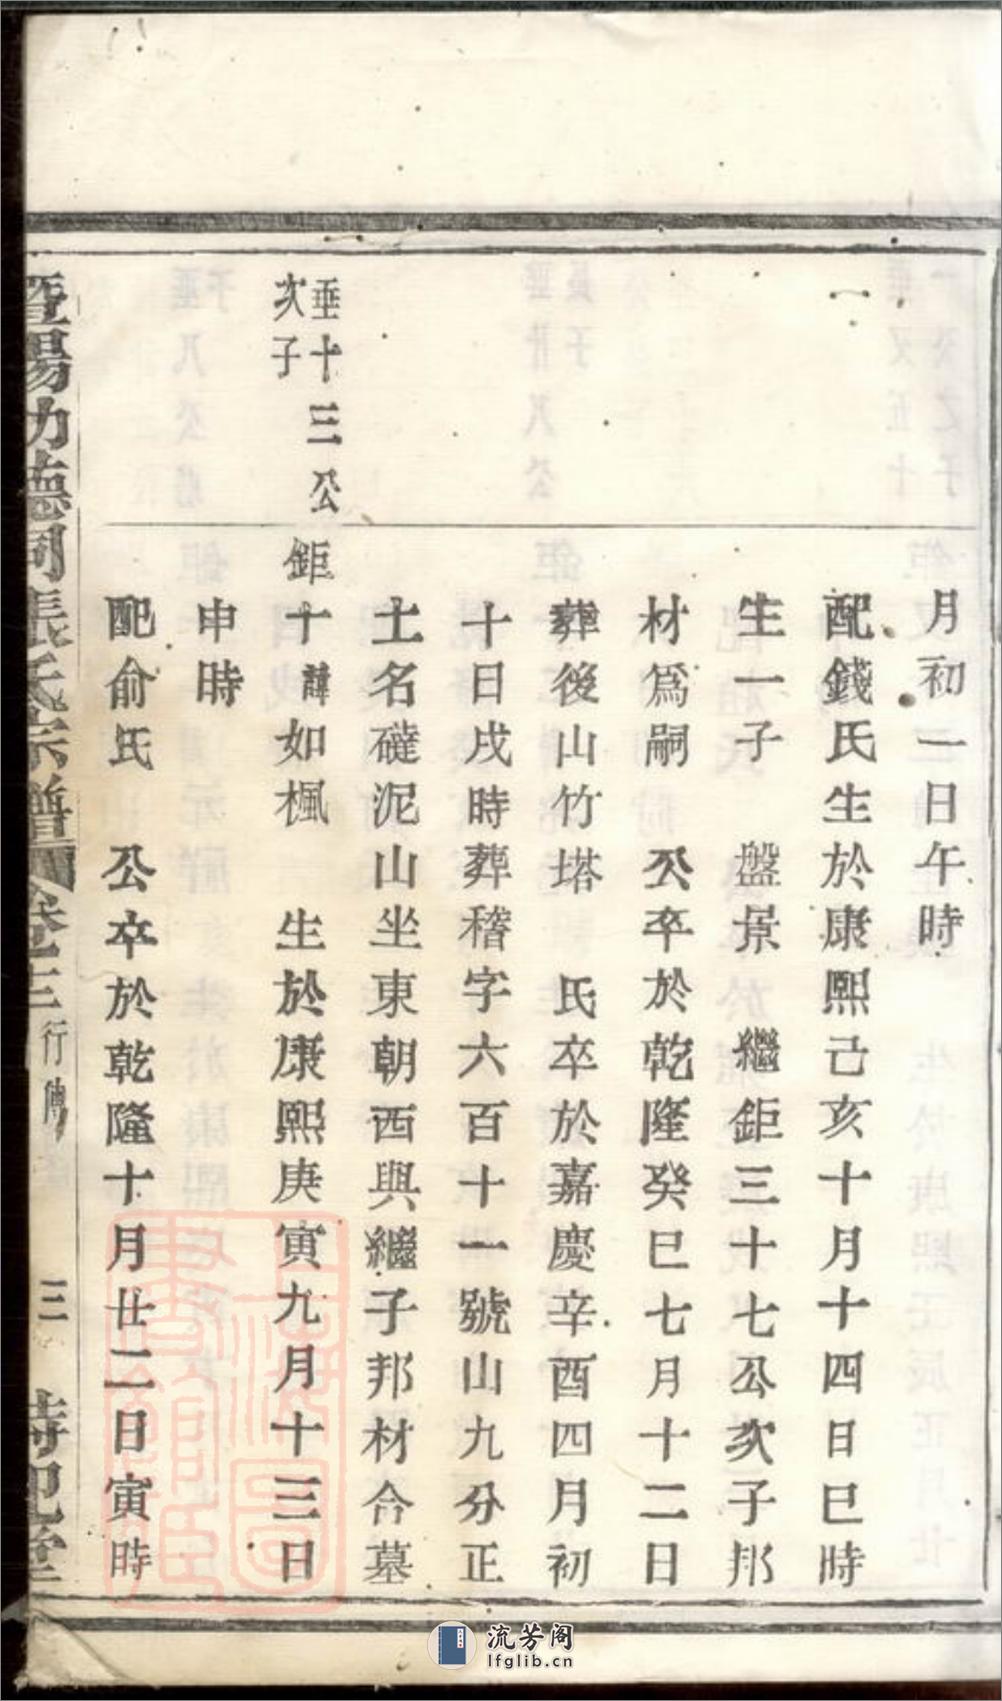 月初一日午時
配錢氏生於康熙己亥十月十四日巳時
生一子　盤景　繼鉅三十七公次子邦
材爲嗣　公卒於乾隆癸巳七月十二日
葬後山竹塔　氏卒於嘉慶辛酉四月初
十日戌時葬稽字六百十一號山九分正
土名磋泥山坐東朝西與繼子邦材合墓
垂十三公
次子
鉅十諱如楓　生於康熙庚寅九月十三日
申時
配俞氏　公卒於乾隆十月廿二日寅時
暨陽功德祠張氏宗譜　卷之三　行傳　三　時思堂
上海圖書館藏
流芳阁
lfglib.cn